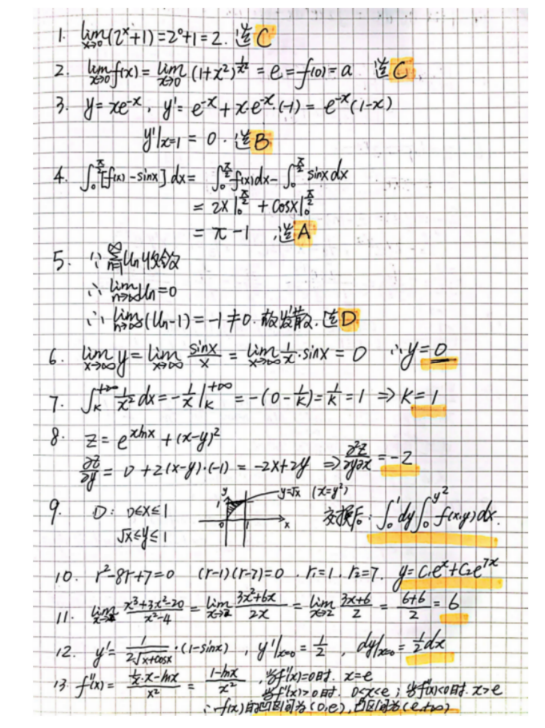 1. lim x→0 (2^x+1)=2^0+1=2. 选C
2. lim x→0 f(x)=lim x→0 (1+x²)^(1/x²)=e=f(0)=a 选C.
3. y=xe^-x, y'=e^-x+x·e^-x·(-1)=e^-x(1-x)
y'|x=1 = 0. 选B
4. ∫₀^(π/2)[f(x)-sinx]dx= ∫₀^(π/2)f(x)dx-∫₀^(π/2)sinxdx
= 2x|₀^(π/2) + cosx|₀^(π/2)
= π-1 .选A
5. ∵ ∑n=1^∞ Un收敛
∴ lim n→∞ Un=0
∴ lim n→∞ (Un-1)=-1≠0. 故发散. 选D
6. lim x→∞ y=lim x→∞ sinx/x = lim x→∞ 1/x·sinx=0 ∴y=0
7. ∫k^+∞ 1/x² dx=-1/x|k^+∞ =-(0-1/k)=1/k=1 ⇒K=1
8. z=e^xlnx+(x-y)²
∂z/∂y=0+2(x-y)·(-1)=-2x+2y ⇒∂²z/∂y∂x=-2
9. D: 0≤x≤1 y=√x (x=y²) 交换后: ∫₀^1dy∫₀^y² f(x,y)dx.
√x≤y≤1
10. r²-8r+7=0 (r-1)(r-7)=0 . r₁=1. r₂=7. y=C₁e^x+C₂e^7x
11. lim x→2 x³+3x²-20/x²-4=lim x→2 3x²+6x/2x=lim x→2 3x+6/2=6+6/2=6
12. y'=1/2√x+cosx·(1-sinx), y'|x=0=1/2, dy|x=0=1/2dx
13. f''(x)=1/x·x-lnx/x²=1-lnx/x², 当f''(x)=0时. x=e
当f''(x)>0时. 0<x<e; 当f''(x)<0时. x>e
∴f(x)的凹区间为(0,e),凸区间为(e,+∞)